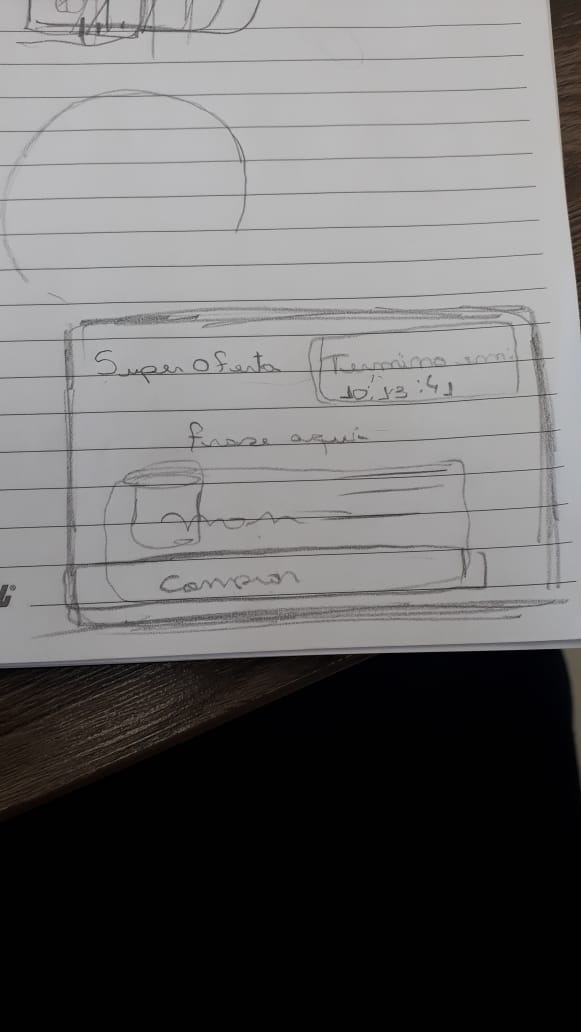 Super Oferta
Termino em:
10:13:41
frase aqui
Comprar